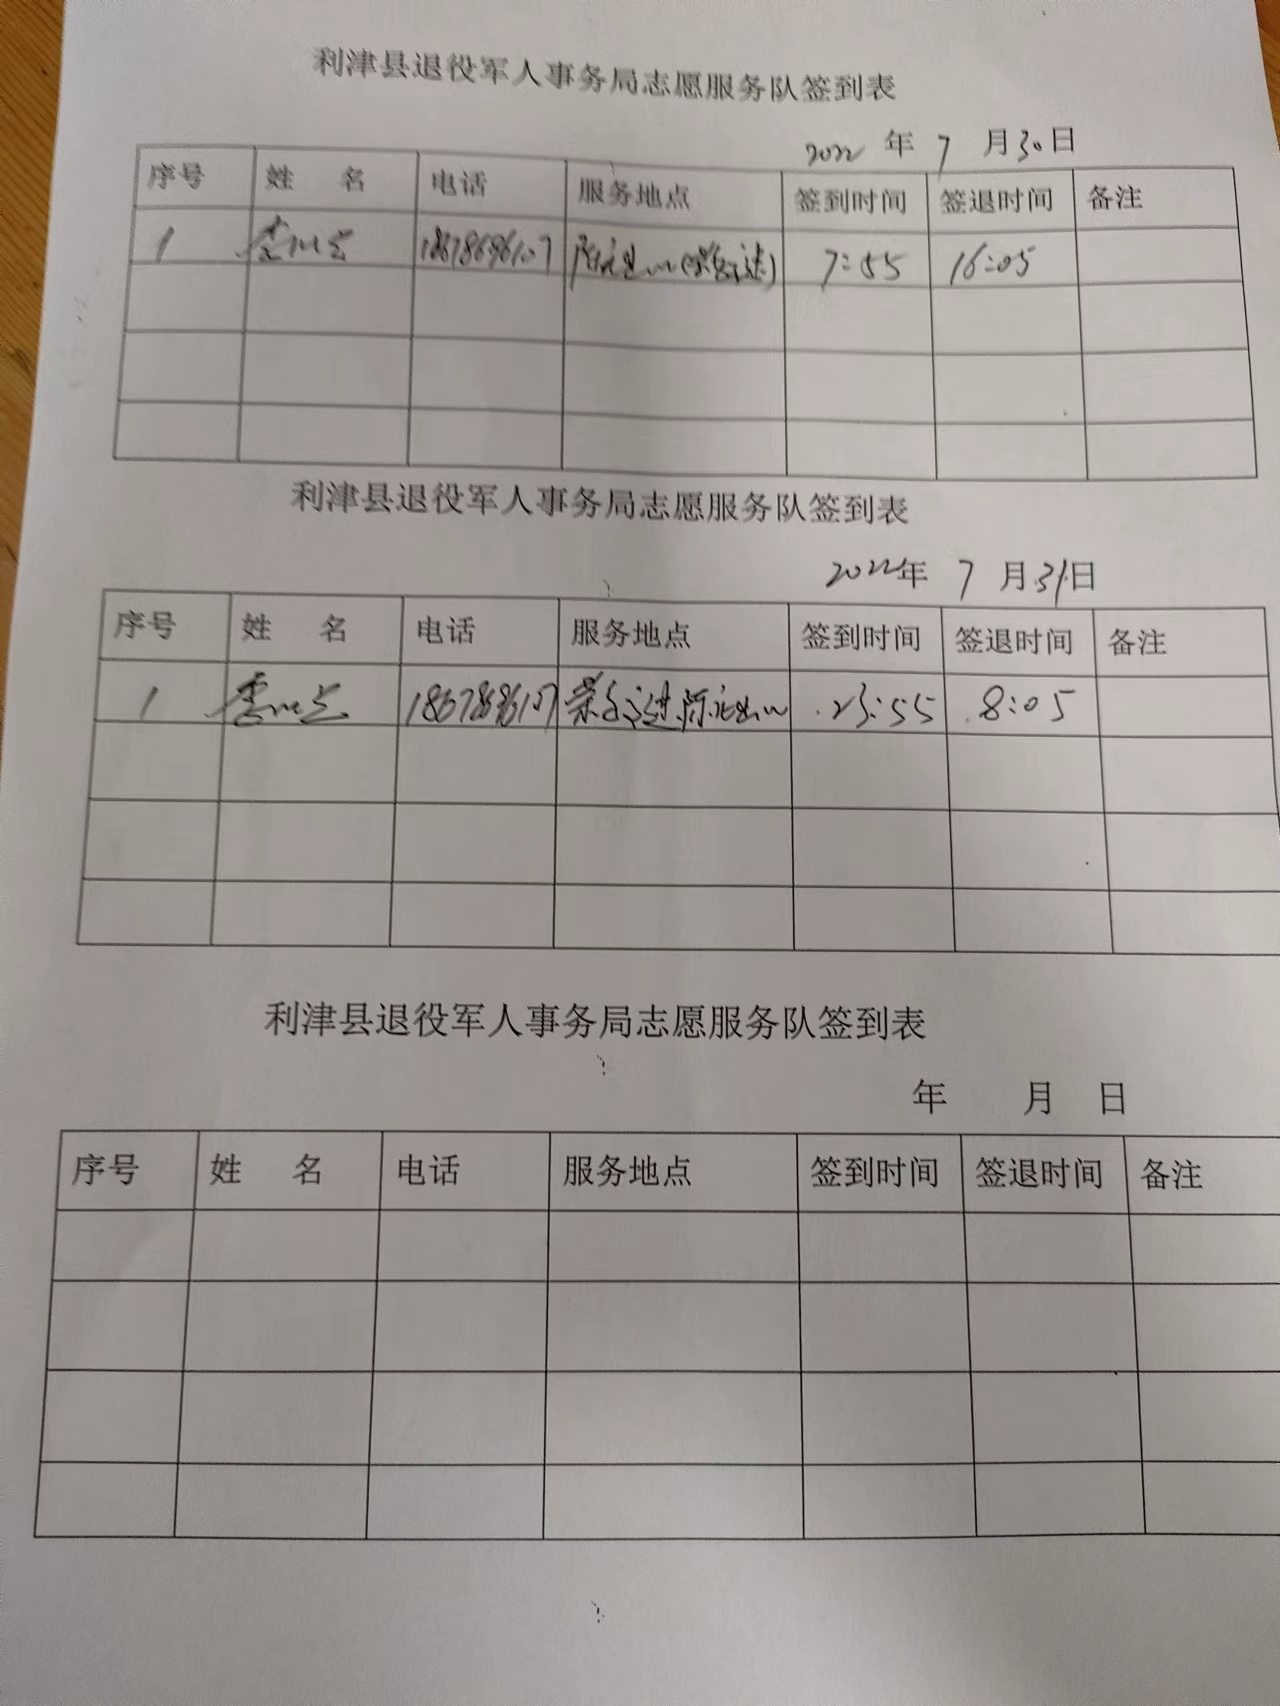 利津县退役军人事务局志愿服务队签到表
2022 年 7 月 30 日
序号 姓 名 电话 服务地点 签到时间 签退时间 备注
1 18678696107 7:55 16:05
利津县退役军人事务局志愿服务队签到表
2022 年 7 月 31 日
序号 姓 名 电话 服务地点 签到时间 签退时间 备注
1 18678696107 23:55 8:05
利津县退役军人事务局志愿服务队签到表
年 月 日
序号 姓 名 电话 服务地点 签到时间 签退时间 备注